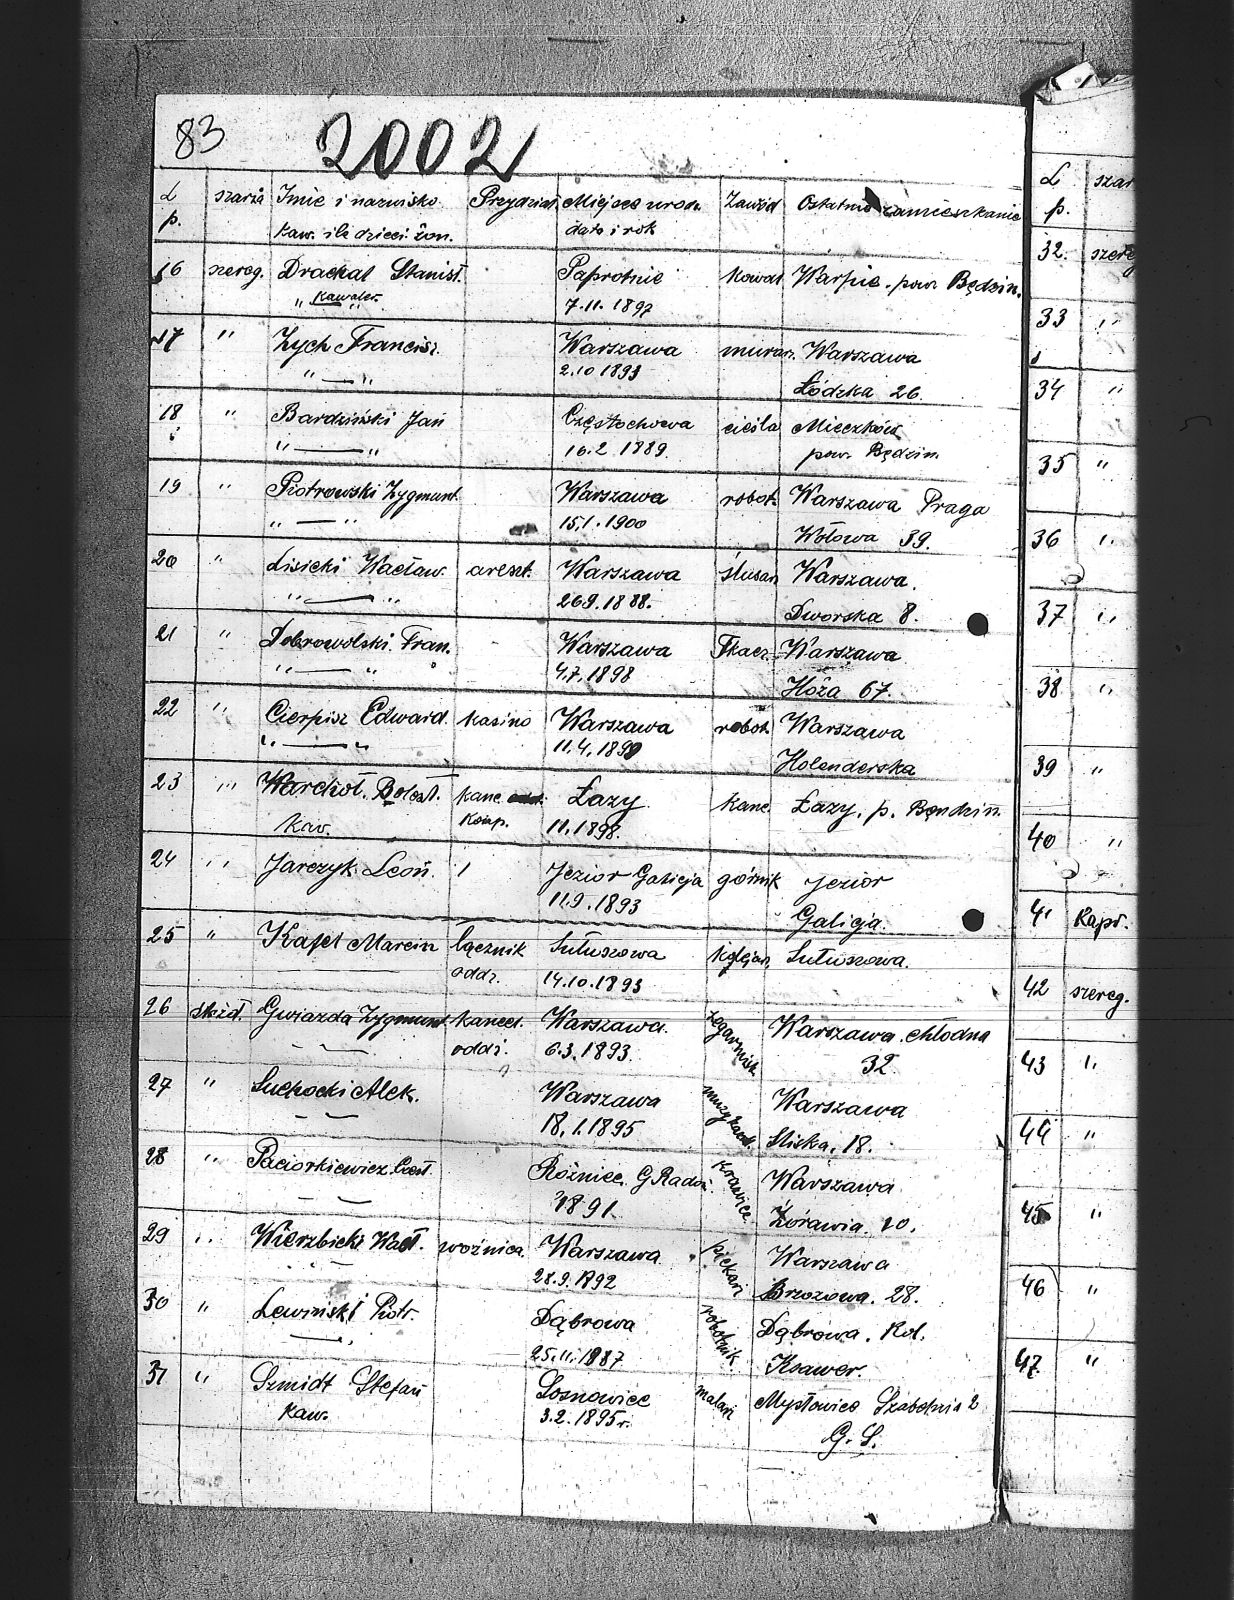 83 2002
L p. szarża Imie i nazwisko Przydział Miejsce urodz. Zawód Ostatnie zamieszkanie
kaw. ile dzieci żon. data i rok
16 szereg. Drackal Stanisł. Paprotnie Kowal Warpie. pow. Będzin.
" kawaler. " 7.11.1897
17 " Zych Francisz. Warszawa murarz. Warszawa
" — " 2.10 1893 Łódzka 26.
18 " Bardziński Jan Częstochowa cieśla Mieczków
" — " 16.2 1889 pow. Będzin.
19 " Piotrowski Zygmunt. Warszawa robot. Warszawa Praga
" — " 15.1.1900 Wołowa 39.
20 " Lisicki Wacław. areszt. Warszawa Ślusarz Warszawa.
" — " 26.9.1888. Dworska 8.
21 " Dobrowolski Fran. Warszawa Tkacz. Warszawa
" — " 4.7.1898 Hoża 67.
22 " Cierpisz Edward. kasino Warszawa robot. Warszawa
" — " 11.4.1890 Holenderska
23 " Warchoł. Bolesł. kanc. Łazy kanc Łazy. p. Bendzin.
kaw. komp. 11.1898.
24 " Jarczyk Leon. Jezior Galicja górnik Jezior
11.9.1893 Galicja.
25 " Kafel Marcin łącznik Sułuszowa kolejarz Sułuszowa.
oddz. 14.10.1893
26 st.żoł. Gwiazda Zygmunt kancel. Warszawa. zegarmistrz Warszawa. Chłodna
oddz. 6.3.1893. 32
27 " Suchocki Alek. Warszawa muzykant. Warszawa
18.1.1895 Śliska. 18.
28 " Paciorkiewicz Czesł. Różnice. G Radom. Krawiec Warszawa
1891. Żórawia. 10.
29 " Wierzbicki Wacł. woźnica. Warszawa piekarz Warszawa
28.9.1892 Brzozowa. 28.
30 " Lewiński Piotr. Dąbrowa robotnik. Dąbrowa. Kol.
25.11.1887 Ksawer.
31 " Szmidt Stefan Sosnowiec malarz Mysłowice Szabelnia 2
kaw. 3.2.1895r. G. S.
L p. szar
32. szereg
33 "
34 "
35 "
36 "
37 "
38 "
39 "
40 "
41 Kapr.
42 szereg.
43 "
44 "
45 "
46 "
47. "